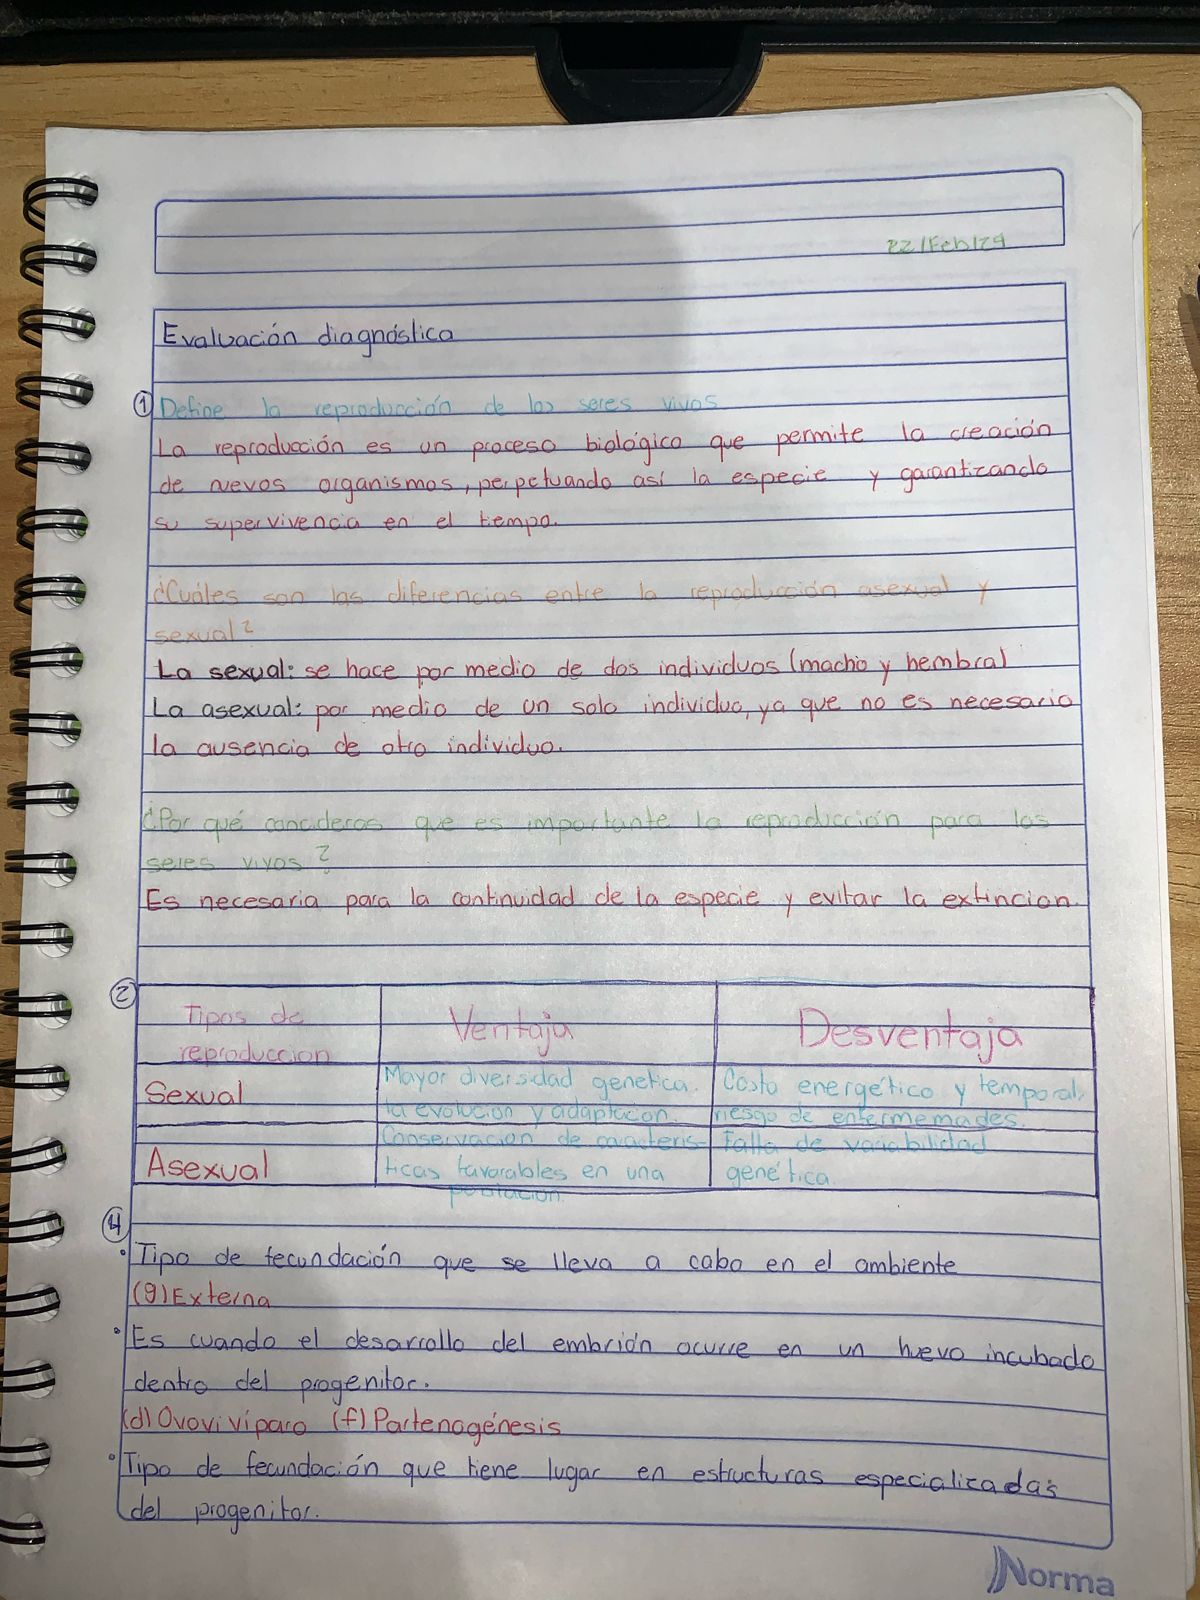 22/Feb/24
Evaluación diagnóstica
① Define la reproducción de los seres vivos
La reproducción es un proceso biológico que permite la creación
de nuevos organismos, perpetuando así la especie y garantizando
su supervivencia en el tiempo.
¿Cuáles son las diferencias entre la reproducción asexual y
sexual?
La sexual: se hace por medio de dos individuos (macho y hembra)
La asexual: por medio de un solo individuo, ya que no es necesario
la ausencia de otro individuo.
¿Por qué concideras que es importante la reproducción para los
seres vivos?
Es necesaria para la continuidad de la especie y evitar la extincion.
②
Tipos de
reproduccion
Ventaja
Desventaja
Sexual
Mayor diversidad genetica.
la evolucion y adaptacion.
Costo energético y temporal,
riesgo de enfermemades.
Asexual
Conservacion de caracteris-
ticas favorables en una
poblacion.
Falta de variabilidad
genética.
④
• Tipo de fecundación que se lleva a cabo en el ambiente
(g) Externa
• Es cuando el desarrollo del embrión ocurre en un huevo incubado
dentro del progenitor.
(d) Ovovivíparo (f) Partenogénesis
• Tipo de fecundación que tiene lugar en estructuras especializadas
del progenitor.
Norma